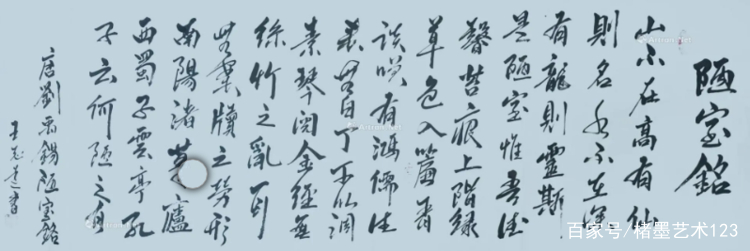 陋室銘
山不在高有仙
則名水不在深
有龍則靈斯
是陋室惟吾德
馨苔痕上階綠
草色入簾青
談笑有鴻儒往
來無白丁可以調
素琴閱金經無
絲竹之亂耳
無案牘之勞形
南陽諸葛廬
西蜀子雲亭孔
子云何陋之有
唐劉禹錫陋室銘
百家号/楮墨艺术123